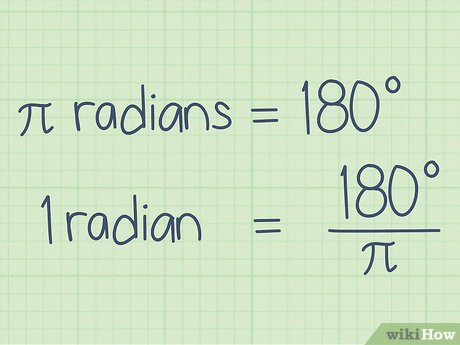 π radians = 180°
1 radian = 180°/π
wikiHow